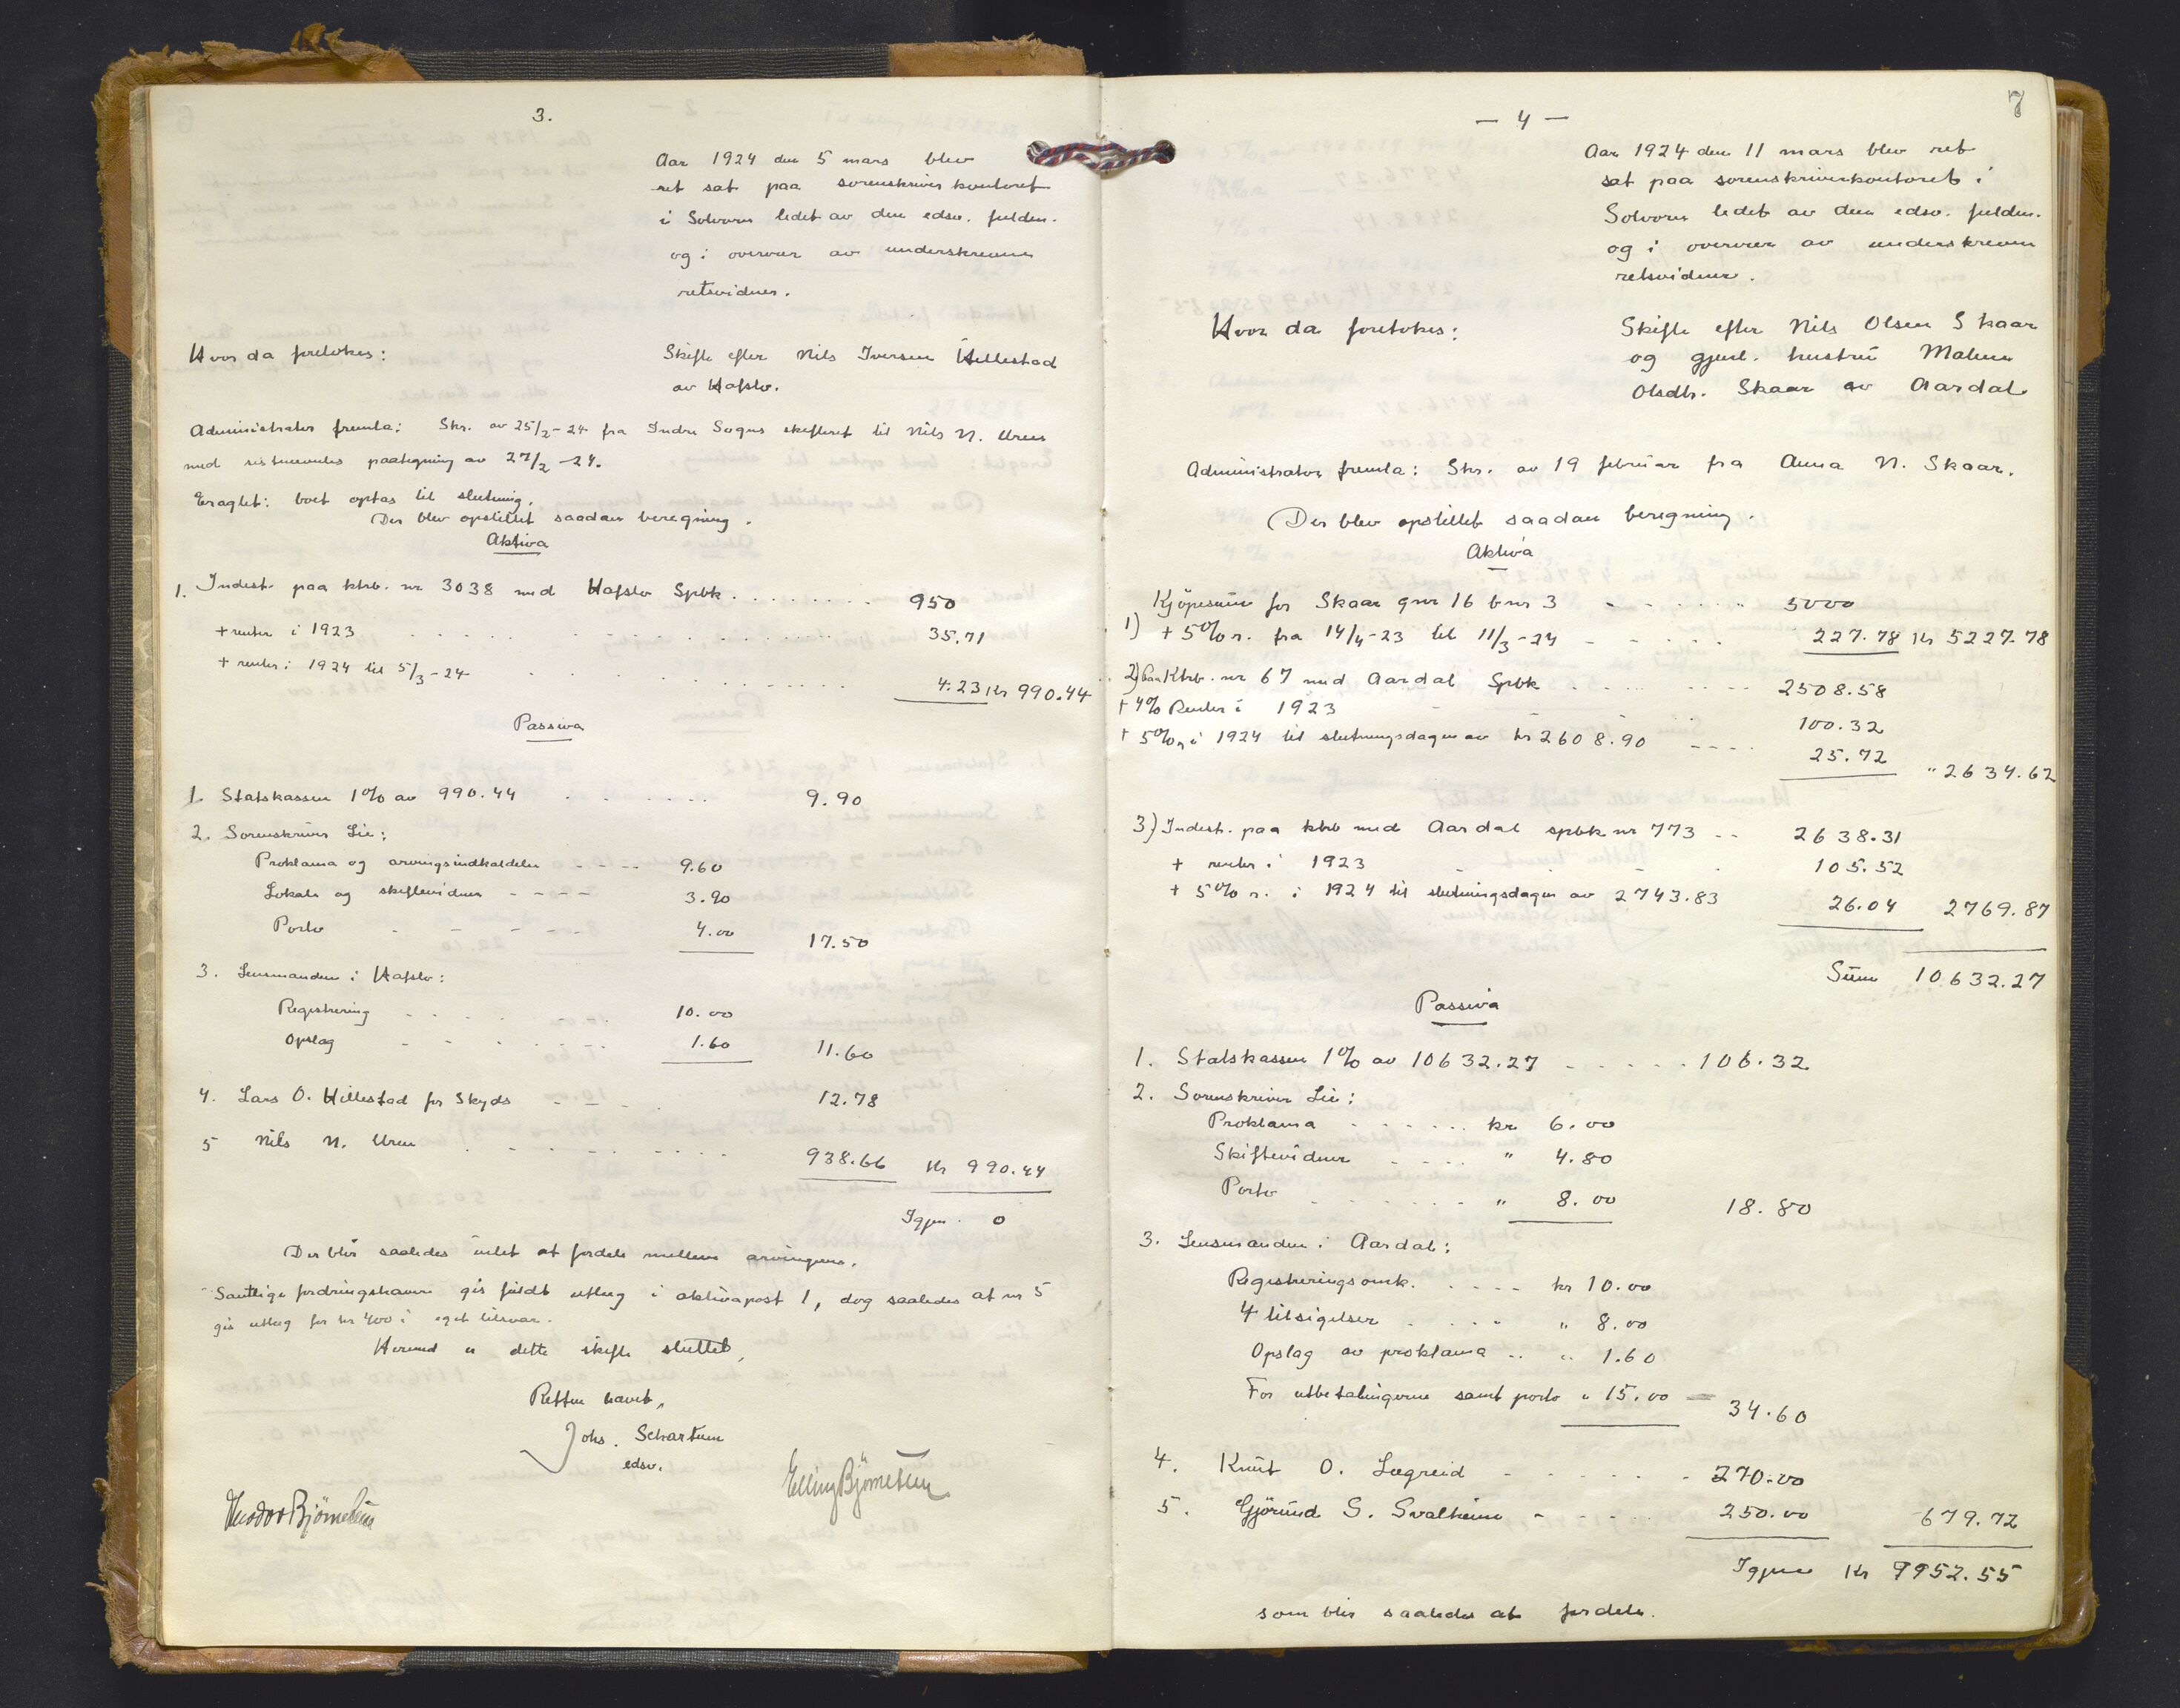 3.
Aar 1924 den 5 mars blev
ret sat paa sorenskriverkontoret
i Solvorn ledet av den edsv. fuldm.
og i overvær av underskrevne
retsvidner.
Hvor da foretokes:
Skifte efter Nils Iversen Hillestad
av Hafslo.
Administrator fremla: Skr. av 25/2-24 fra Indre Sogns skifteret til Nils N. Uren
med sistnevntes paategning av 27/2-24.
Eragtet: boet optas til slutning.
Der blev opstillet saadan beregning.
Aktiva
1. Indest. paa ktrb. nr 3038 med Hafslo Spbk. 950
+ renter i 1923 35.71
+ renter i 1924 til 5/3-24 4.23 Kr 990.44
Passiva
1. Statskassen 1% av 990.44 9.90
2. Sorenskriver Lie:
Proklama og arvingsindkaldelse 9.60
Lokale og skiftevidner 3.90
Porto 4.00 17.50
3. Lensmanden i Hafslo:
Registrering 10.00
Opslag 1.60 11.60
4. Lars O. Hillestad for Skyds 12.78
5 Nils N. Uren 938.66 Kr 990.44
Igjen 0
Der blir saaledes intet at fordele mellem arvingene.
Samtlige fordringshavere gis fuldt utlæg i aktivapost 1, dog saaledes at nr 5
gis utlæg for kr 400 i eget tilsvar.
Hermed er dette skifte sluttet,
Retten hævet,
Johs. Schartum
edsv.
Elling Bjørnetun
Theodor Bjørnetun
7
— 4 —
Aar 1924 den 11 mars blev ret
sat paa sorenskriverkontoret i
Solvorn ledet av den edsv. fuldm.
og i overvær av underskrevne
retsvidner.
Hvor da foretokes:
Skifte efter Nils Olsen Skaar
og gjenl. hustru Malene
Olsdtr. Skaar av Aardal
Administrator fremla: Skr. av 19 februar fra Anna N. Skaar.
Der blev opstillet saadan beregning.
Aktiva
Kjøpesum for Skaar gnr 16 bnr 3 5000
1) + 5% r. fra 14/4-23 til 11/3-24 227.78 Kr 5227.78
2) Ktrb. nr 67 med Aardal Spbk 2508.58
+ 4% Renter i 1923 100.32
+ 5% r. i 1924 til slutningsdagen av kr 2608.90 25.72 " 2634.62
3) Indest. paa ktrb med Aardal spbk nr 773 2638.31
+ renter i 1923 105.52
+ 5% r. i 1924 til slutningsdagen av 2743.83 26.04 2769.87
Sum 10632.27
Passiva
1. Statskassen 1% av 10632.27 106.32
2. Sorenskriver Lie:
Proklama kr 6.00
Skiftevidner " 4.80
Porto " 8.00 18.80
3. Lensmanden i Aardal:
Registreringsomk. kr 10.00
4 tilsigelser " 8.00
Opslag av proklama " 1.60
For utbetalingerne samt porto " 15.00 = 34.60
4. Knut O. Lægreid 270.00
5. Gjørund S. Svalheim 250.00 679.72
Igjen Kr 9952.55
som blir saaledes at fordele.